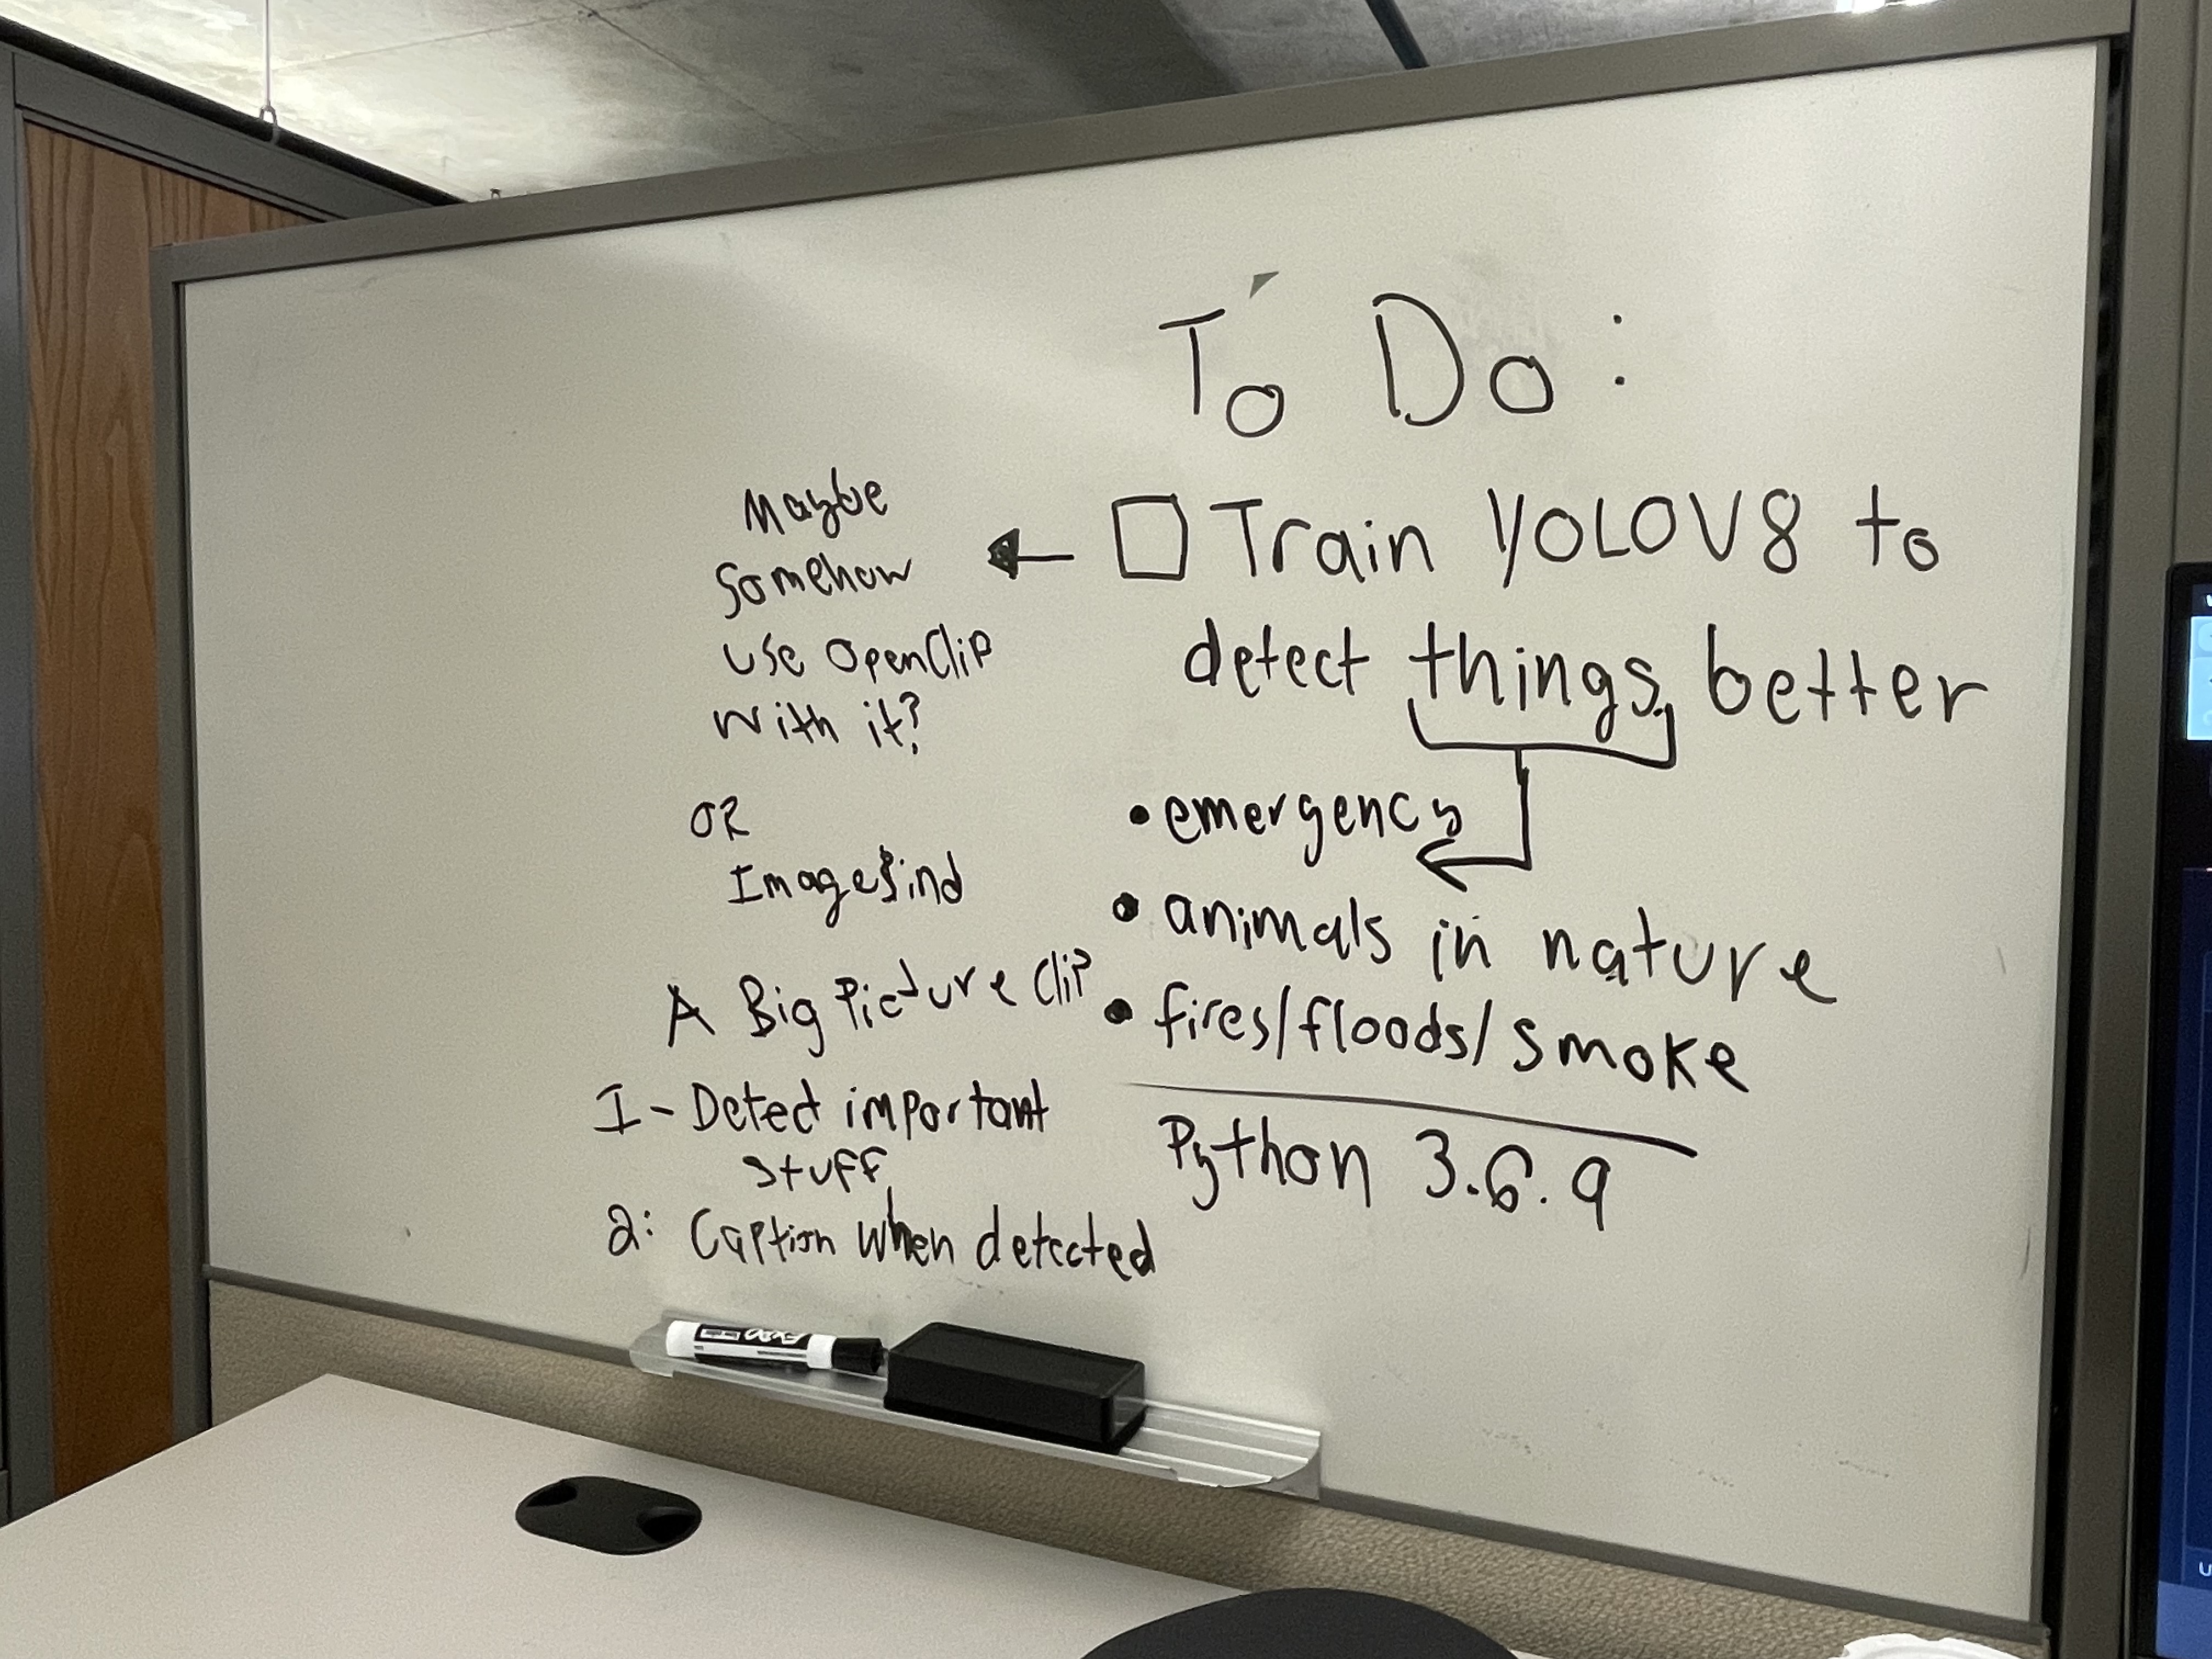 To Do:
☐ Train YOLOV8 to
detect things better
• emergency
• animals in nature
• fires/floods/smoke
Python 3.6.9
Maybe
Somehow
use OpenClip
with it?
OR
ImageBind
A Big Picture Clip
1- Detect important
stuff
2: Caption when detected
EXPO